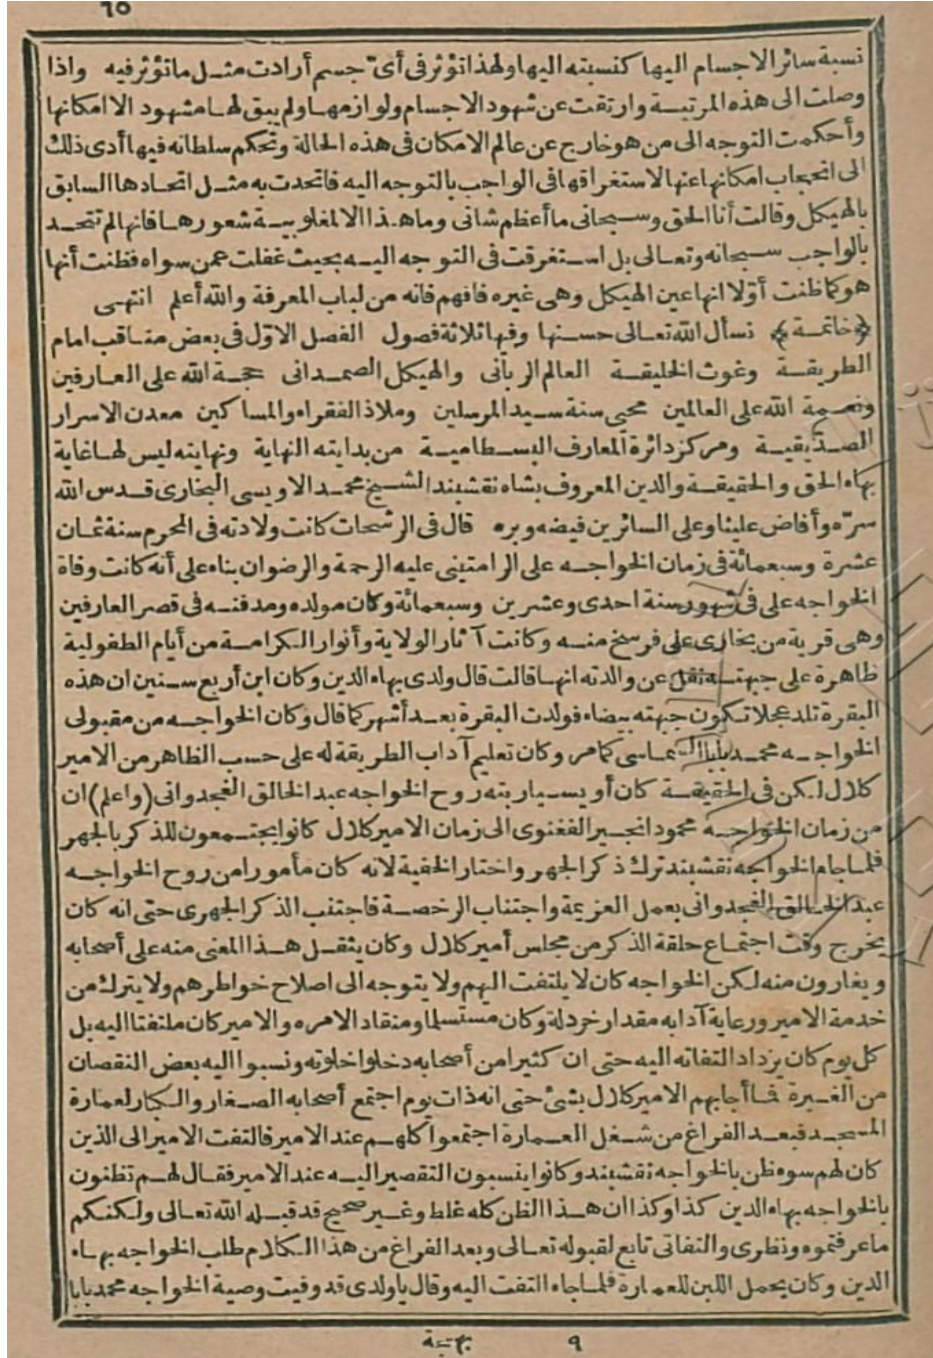 ٦٥
نسبة سائر الاجسام اليها كنسبته اليها ولهذا تؤثر فى أىّ جسم أرادت مثل ما تؤثر فيه واذا
وصلت الى هذه المرتبة وارتقت عن شهود الاجسام ولوازمها ولم يبق لها مشهود الا امكانها
وأحكمت التوجه الى من هو خارج عن عالم الامكان فى هذه الحالة وتحكم سلطانه فيها أدى ذلك
الى انحجاب امكانها عنها لاستغراقها فى الواجب بالتوجه اليه فاتحدت به مثل اتحادها السابق
بالهيكل وقالت أنا الحق وسبحانى ما أعظم شانى وما هذا الا لمغلوبية شعورها فانها لم تتحد
بالواجب سبحانه وتعالى بل استغرقت فى التوجه اليه بحيث غفلت عمن سواه فظنت أنها
هو كما ظنت أوّلا انها عين الهيكل وهى غيره فافهم فانه من لباب المعرفة والله أعلم انتهى
﴿خاتمة﴾ نسأل الله تعالى حسنها وفيها ثلاثة فصول الفصل الاوّل فى بعض مناقب امام
الطريقة وغوث الخليقة العالم الربانى والهيكل الصمدانى حجة الله على العارفين
ونعمة الله على العالمين محيى سنة سيد المرسلين وملاذ الفقراء والمساكين معدن الاسرار
الصدّيقية ومركز دائرة المعارف البسطامية من بدايته النهاية ونهايته ليس لها غاية
بهاء الحق والحقيقة والدين المعروف بشاه نقشبند الشيخ محمد الاويسى البخارى قدس الله
سرّه وأفاض علينا وعلى السائرين فيضه وبره قال فى الرشحات كانت ولادته فى المحرم سنة ثمان
عشرة وسبعمائة فى زمان الخواجه على الرامتينى عليه الرحمة والرضوان بناء على أنه كانت وفاة
الخواجه على فى شهور سنة احدى وعشرين وسبعمائة وكان مولده ومدفنه فى قصر العارفين
وهى قرية من بخارى على فرسخ منه وكانت آثار الولاية وأنوار الكرامة من أيام الطفولية
ظاهرة على جبهته نقل عن والدته انها قالت قال ولدى بهاء الدين وكان ابن أربع سنين ان هذه
البقرة تلد عجلا تكون جبهته بيضاء فولدت البقرة بعد أشهر كما قال وكان الخواجه من مقبولى
الخواجه محمد بابا السماسى كما مر وكان تعليم آداب الطريقة له على حسب الظاهر من الامير
كلال لكن فى الحقيقة كان أويسيا ربته روح الخواجه عبد الخالق الغجدوانى (واعلم) ان
من زمان الخواجه محمود انجير الفغنوى الى زمان الامير كلال كانوا يجتمعون للذكر بالجهر
فلما جاء الخواجه نقشبند ترك ذكر الجهر واختار الخفية لانه كان مأمورا من روح الخواجه
عبد الخالق الغجدوانى بعمل العزيمة واجتناب الرخصة فاجتنب الذكر الجهرى حتى انه كان
يخرج وقت اجتماع حلقة الذكر من مجلس أمير كلال وكان يثقل هذا المعنى منه على أصحابه
ويغارون منه لكن الخواجه كان لا يلتفت اليهم ولا يتوجه الى اصلاح خواطرهم ولا يترك من
خدمة الامير ورعاية آدابه مقدار خردلة وكان مستسلما ومنقاد الامره والامير كان ملتفتا اليه بل
كل يوم كان يزداد التفاته اليه حتى ان كثيرا من أصحابه دخلوا خلوته ونسبوا اليه بعض النقصان
من الغيرة فما أجابهم الامير كلال بشئ حتى انه ذات يوم اجتمع أصحابه الصغار والكبار لعمارة
المسجد فبعد الفراغ من شغل العمارة اجتمعوا كلهم عند الامير فالتفت الامير الى الذين
كان لهم سوء ظن بالخواجه نقشبند وكانوا ينسبون التقصير اليه عند الامير فقال لهم تظنون
بالخواجه بهاء الدين كذا وكذا ان هذا الظن كله غلط وغير صحيح قد قبله الله تعالى ولكنكم
ما عرفتموه ونظرى والتفاتى تابع لقبوله تعالى وبعد الفراغ من هذا الكلام طلب الخواجه بهاء
الدين وكان يحمل اللبن للعمارة فلما جاء التفت اليه وقال يا ولدى قد وفيت وصية الخواجه محمد بابا
٩ بهجة